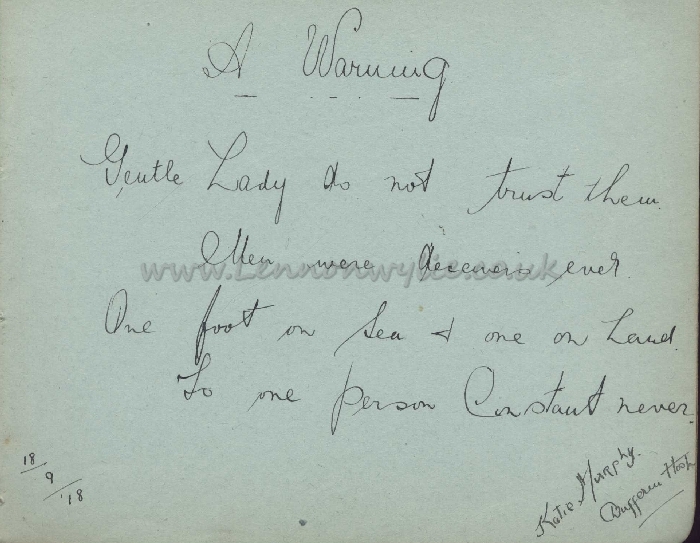 A Warning
Gentle Lady do not trust them.
Men were deceivers ever.
www.Lennonwylie.co.uk
One foot on Sea & one on Land.
To one person Constant never.
18/9/'18
Katie Murphy.
Dufferin Hosp.